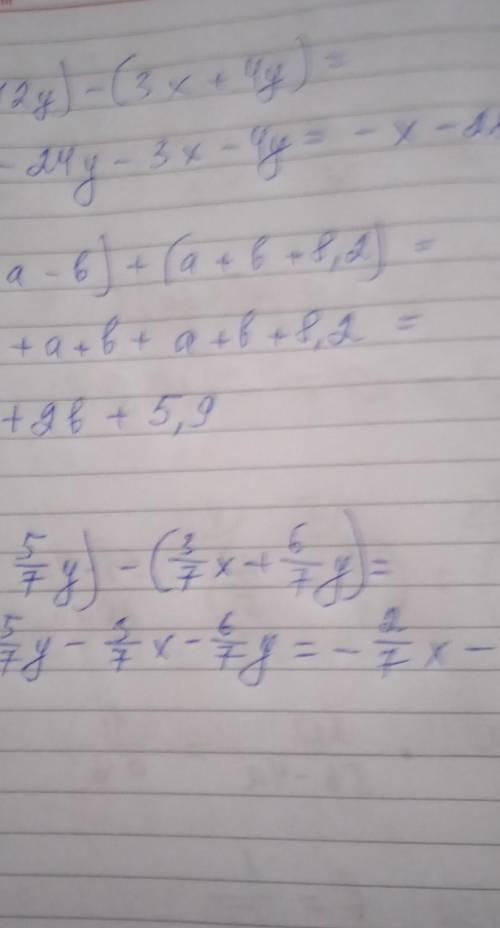 12y) - (3x + 4y) =
- 24y - 3x - 4y = - x - 2
a - b) + (a + b + 8,2) =
+ a + b + a + b + 8,2 =
+ 2b + 5,9
5/7 y) - (3/7 x + 6/7 y) =
5/7 y - 3/7 x - 6/7 y = - 2/7 x -